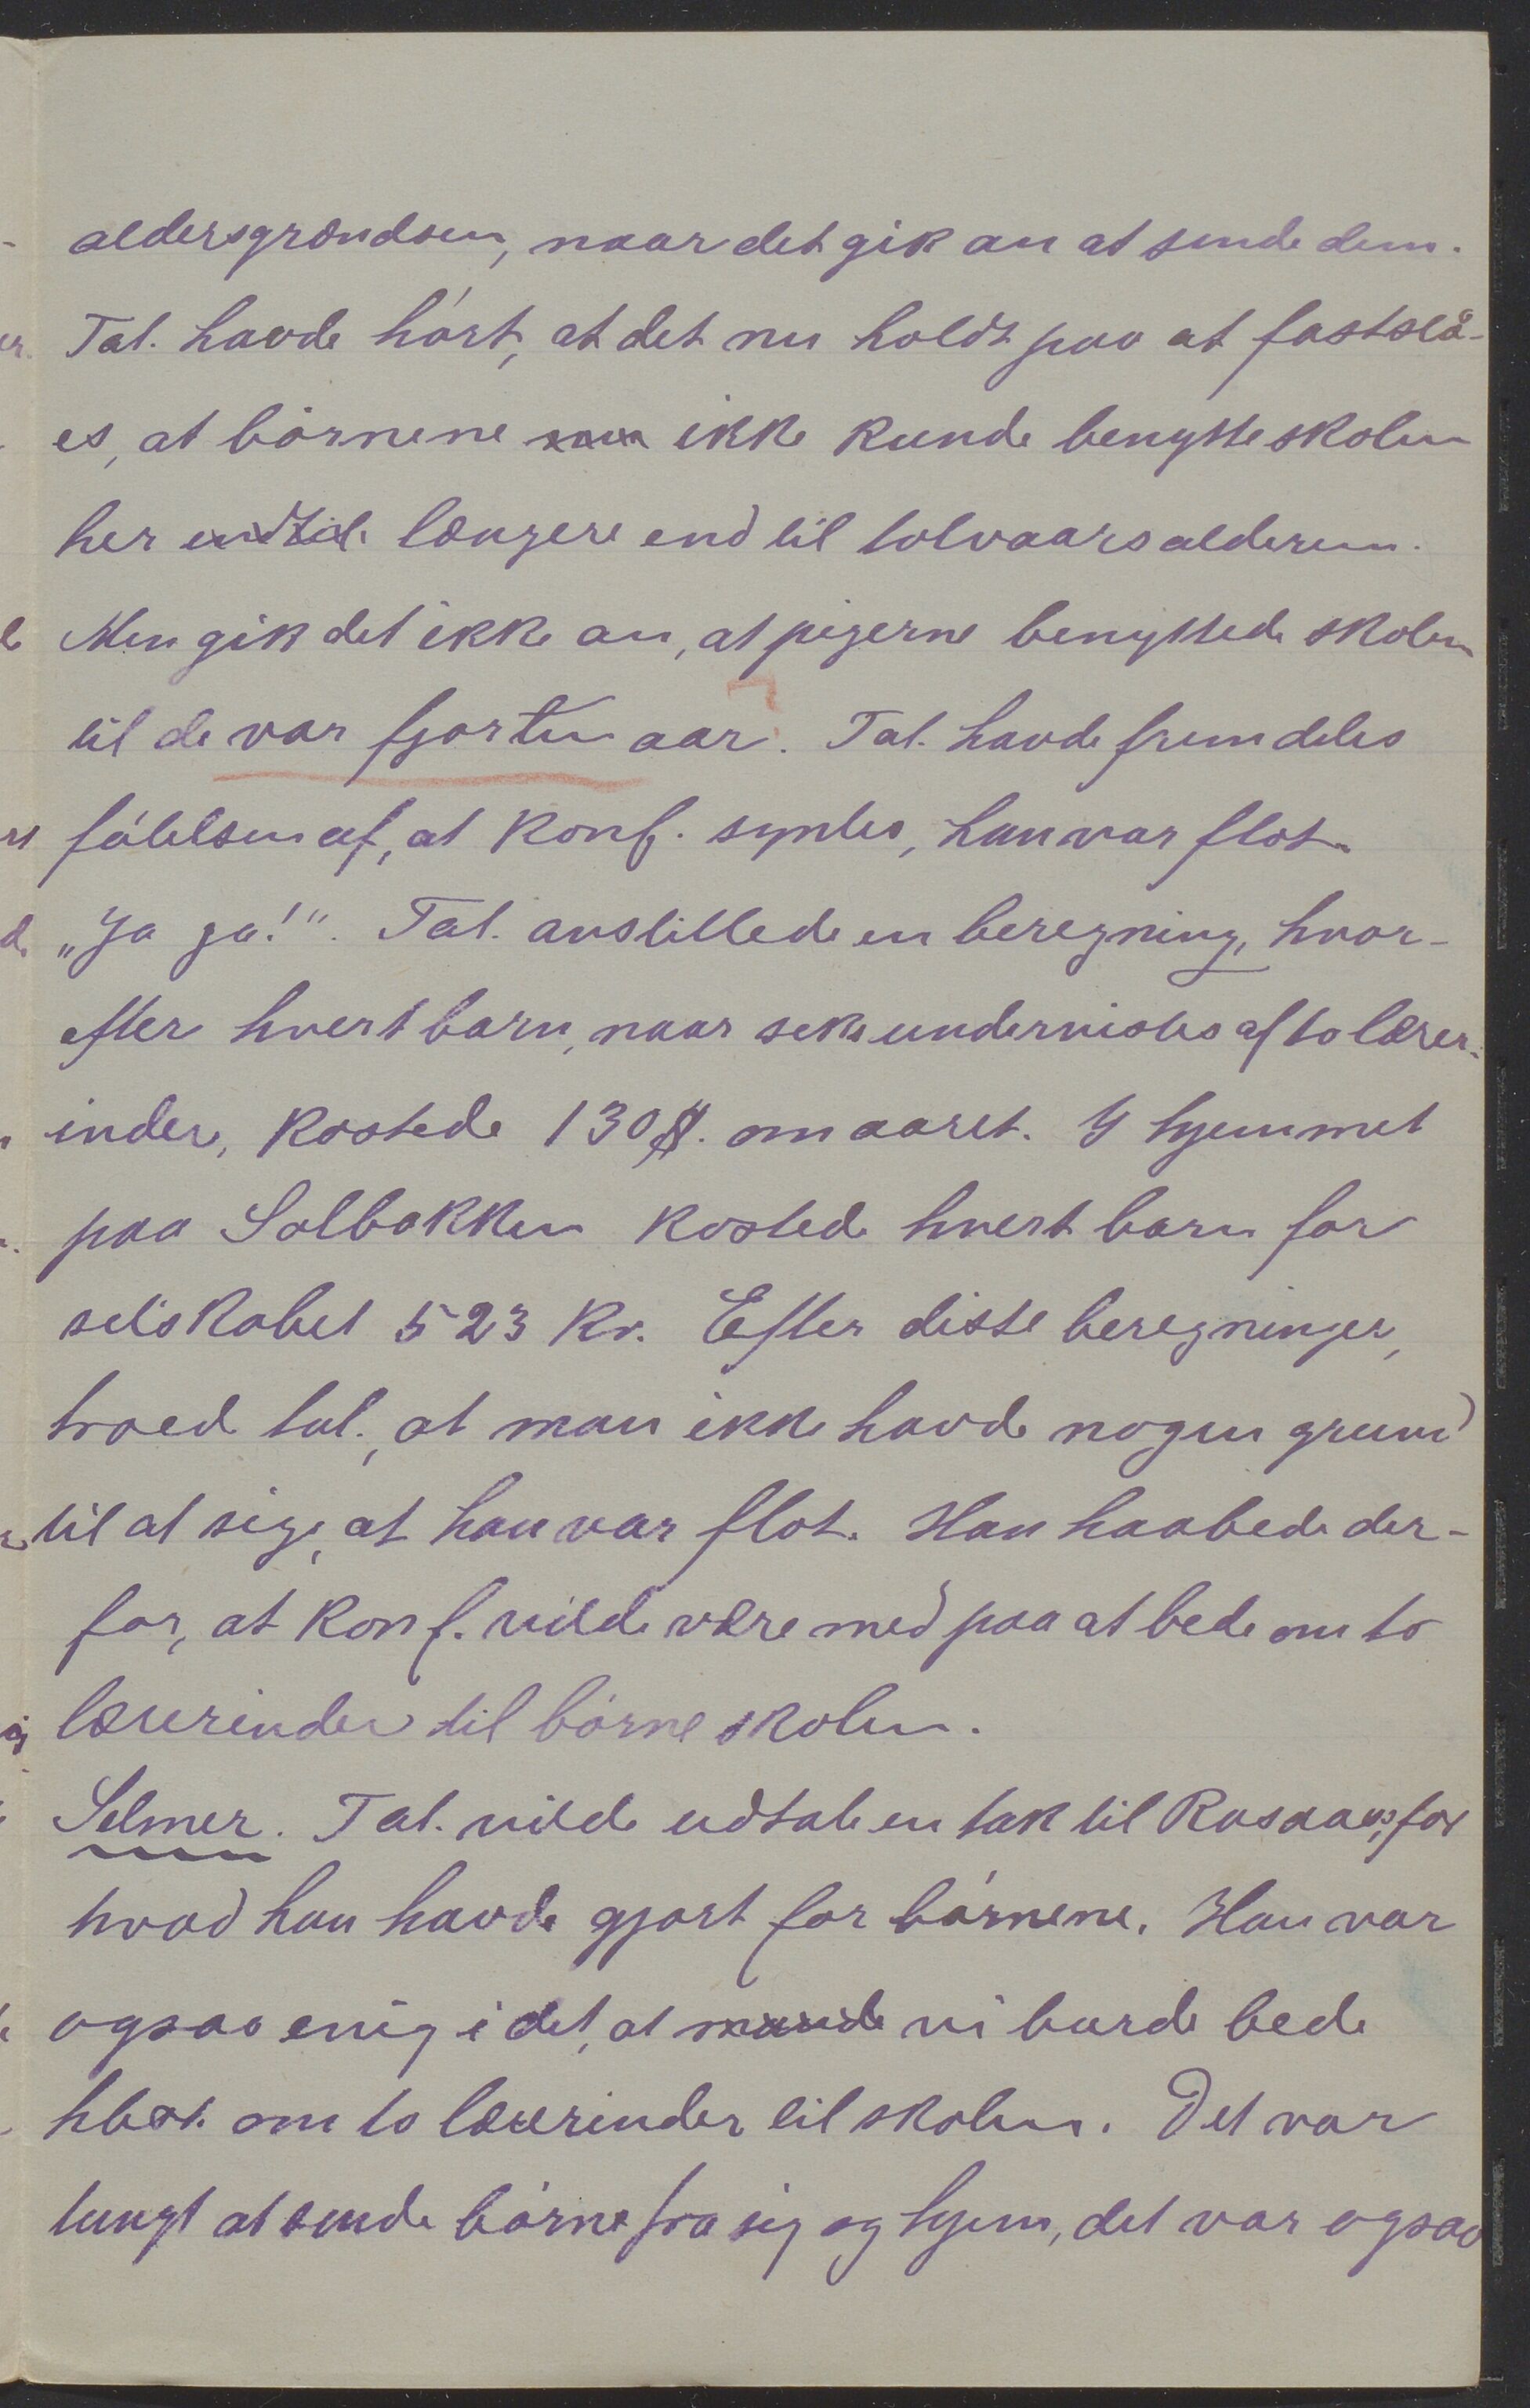 aldersgrændsen, naar det gik an at sende dem.
Tal. havde hørt, at det nu holdt paa at fastslå-
es, at børnene ikke kunde benytte skolen
her indtil længere end til tolvaarsalderen.
Men gik det ikke an, at pigerne benyttede skolen
til de var fjorten aar? Tal. havde fremdeles
følelsen af, at Konf. syntes, han var flot.
„Ja ja!". Tal. anstillede en beregning, hvor-
efter hvert barn, naar seks undervistes af to lærer-
inder, kostede 130 . om aaret. I hjemmet
paa Solbakken kostede hvert barn for
selskabet 523 Kr. Efter disse beregninger,
troede tal., at man ikke havde nogen grund
til at sige, at han var flot. Han haabede der-
for, at Konf. vilde være med paa at bede om to
lærerinder til børneskolen.
Selmer. Tal. vilde udtale en tak til Rosaas, for
hvad han havde gjort for børnene. Han var
ogsaa enig i det, at vi burde bede
hbst. om to lærerinder til skolen. Det var
tungt at sende børne fra sig og hjem, det var ogsaa